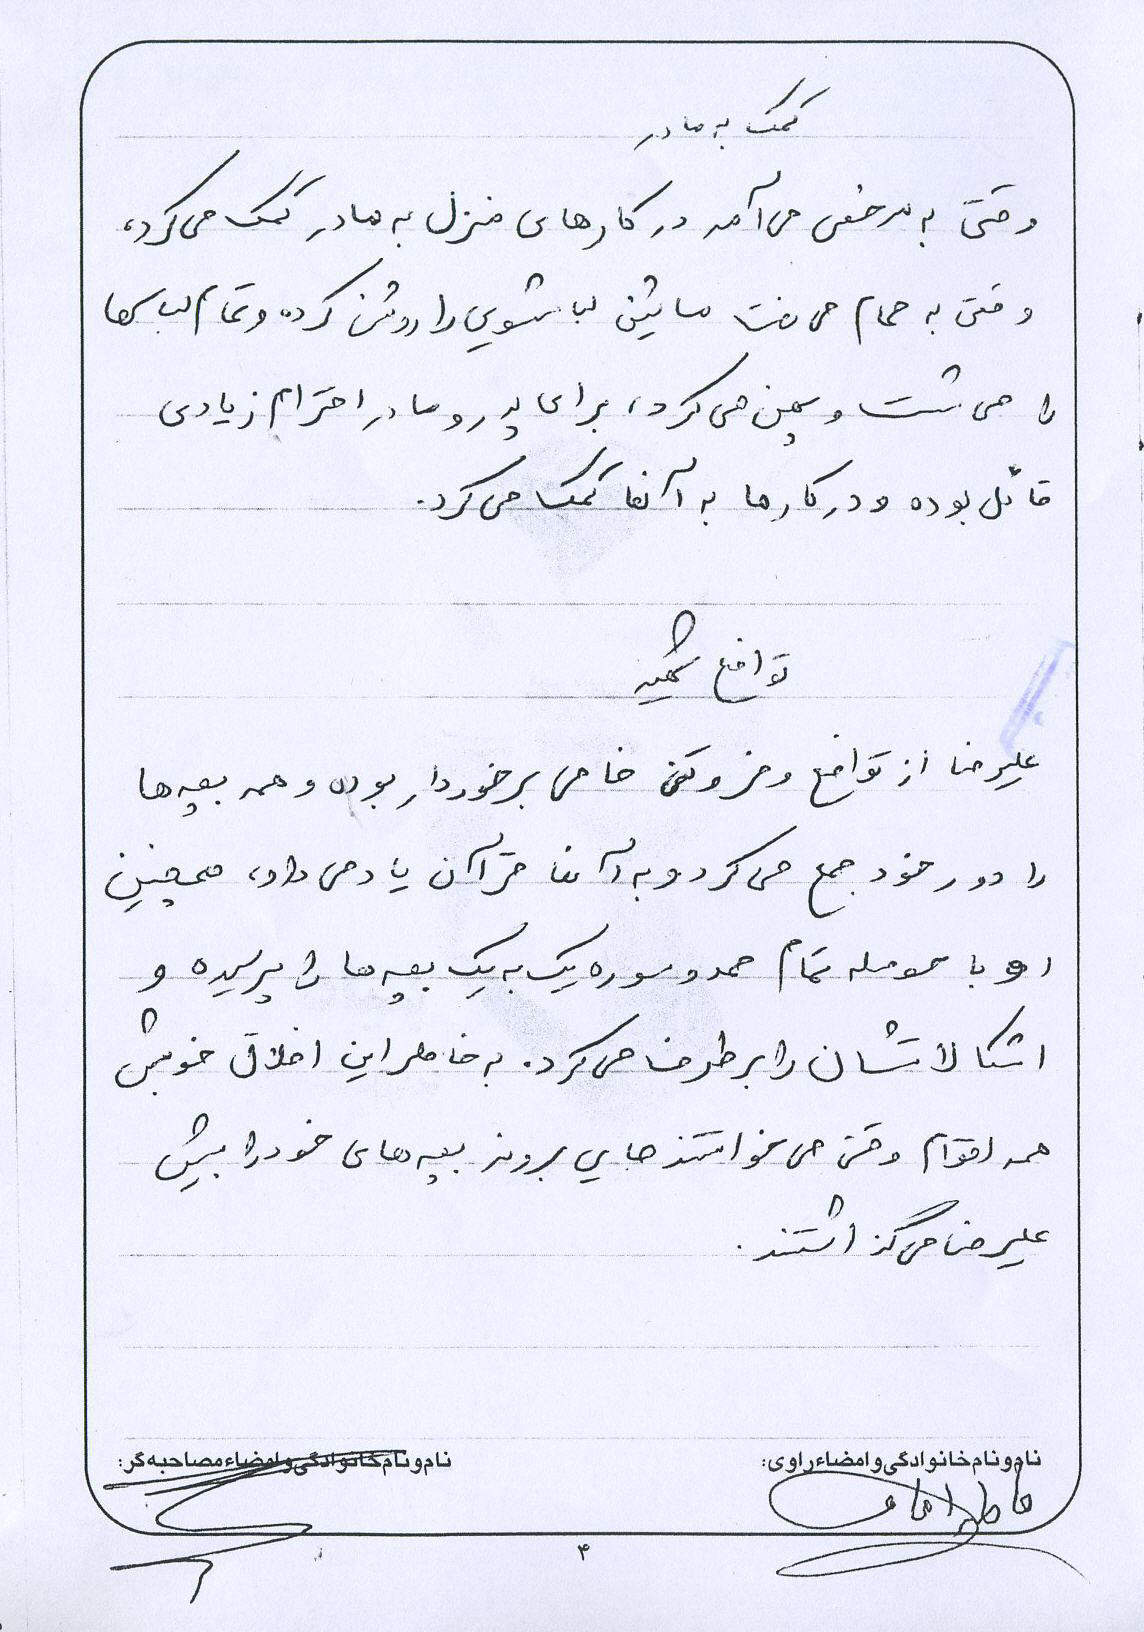 کمک به مادر
وقتی به مرخصی می‌آمد در کارهای منزل به مادر کمک می‌کرد،
وقتی به حمام می‌رفت ماشین لباسشویی را روشن کرده و تمام لباسها
را می‌شست و پهن می‌کرد، برای پدر و مادر احترام زیادی
قائل بوده و در کارها به آنها کمک می‌کرد.
تواضع شهید
علیرضا از تواضع و فروتنی خاصی برخوردار بوده و همه بچه‌ها
را دور خود جمع می‌کرد و به آنها قرآن یاد می‌داد، همچنین
او با حوصله تمام حمد و سوره یک به یک بچه‌ها را پرسیده و
اشکالاتشان را برطرف می‌کرد. به خاطر این اخلاق خوبش
همه اقوام وقتی می‌خواستند جایی بروند بچه‌های خود را پیش
علیرضا می‌گذاشتند.
نام و نام خانوادگی و امضاء راوی:
نام و نام خانوادگی و امضاء مصاحبه‌گر:
۴